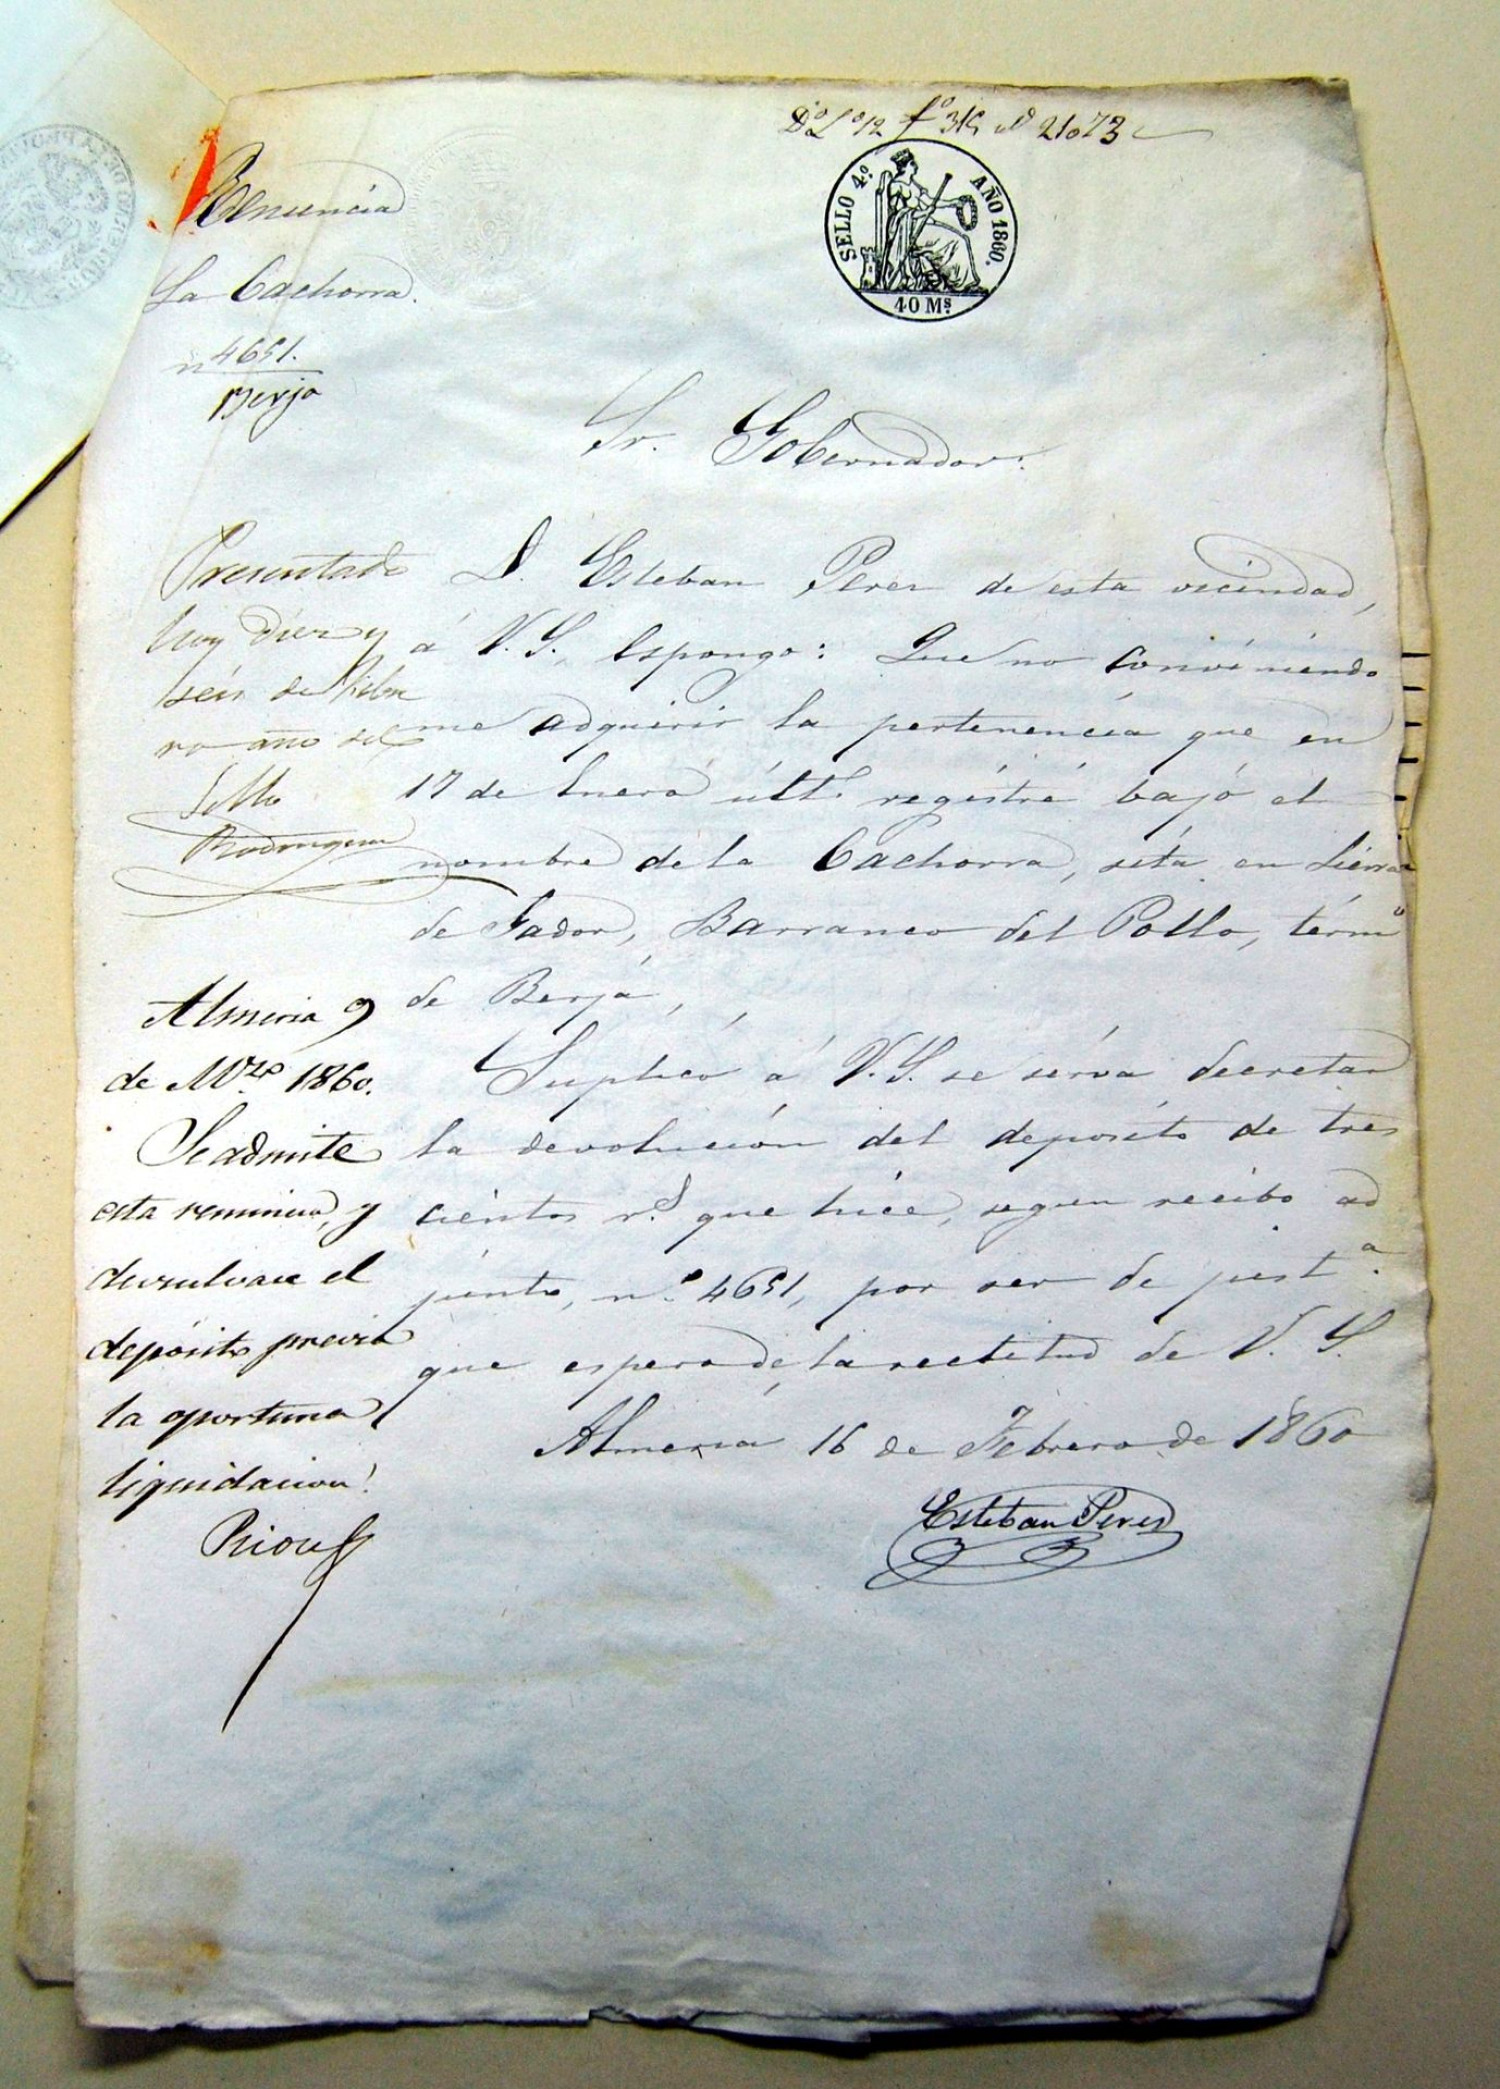 Dº Lº 12 fº 315 21073
SELLO 4º AÑO 1860.
40 Ms.
Renuncia
La Cachorra.
nº 4651.
Berja
Sr. Gobernador:
D. Esteban Perez de esta vecindad,
á V. S. espongo: Que no conviniendo
me adquirir la pertenencia que en
17 de Enero últº registré bajo el
nombre de la Cachorra, sita en Sierra
de Gador, Barranco del Pollo, térmº
de Berja,
Suplico á V. S. se sirva decretar
la devolucion del deposito de tres
cientos rs. que hice, segun recibo ad
junto, nº 4651, por ser de justª.
que espera de la rectitud de V. S.
Almeria 16 de Febrero de 1860
Esteban Perez
Presentado
hoy diez y
seis de Febre
ro año del
Sello
Rodriguez
Almeria 9
de Mzo 1860.
Se admite
esta renuncia, y
devuelvase el
depósito previa
la oportuna
liquidacion.